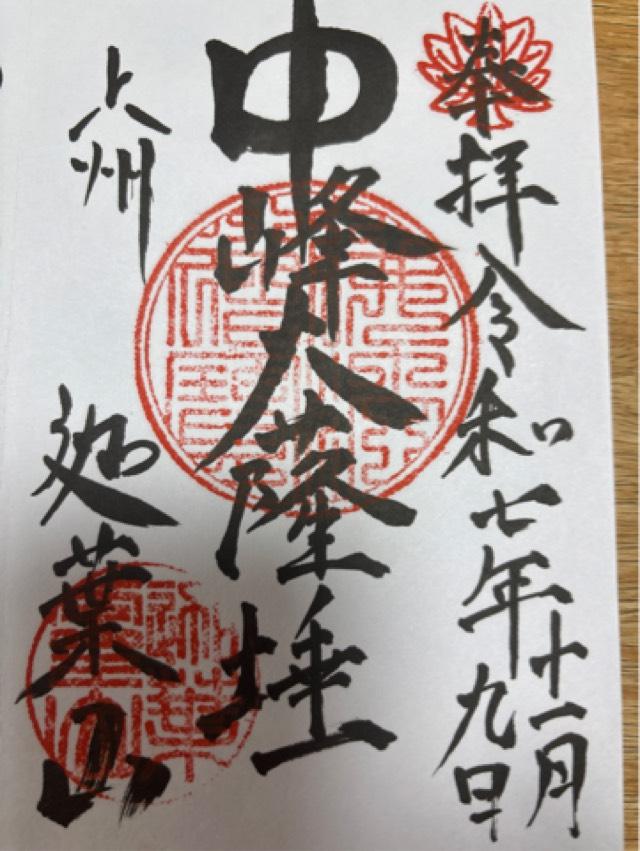 奉拝
令和七年十一月九日
中峰大薩埵
上州
迦葉山